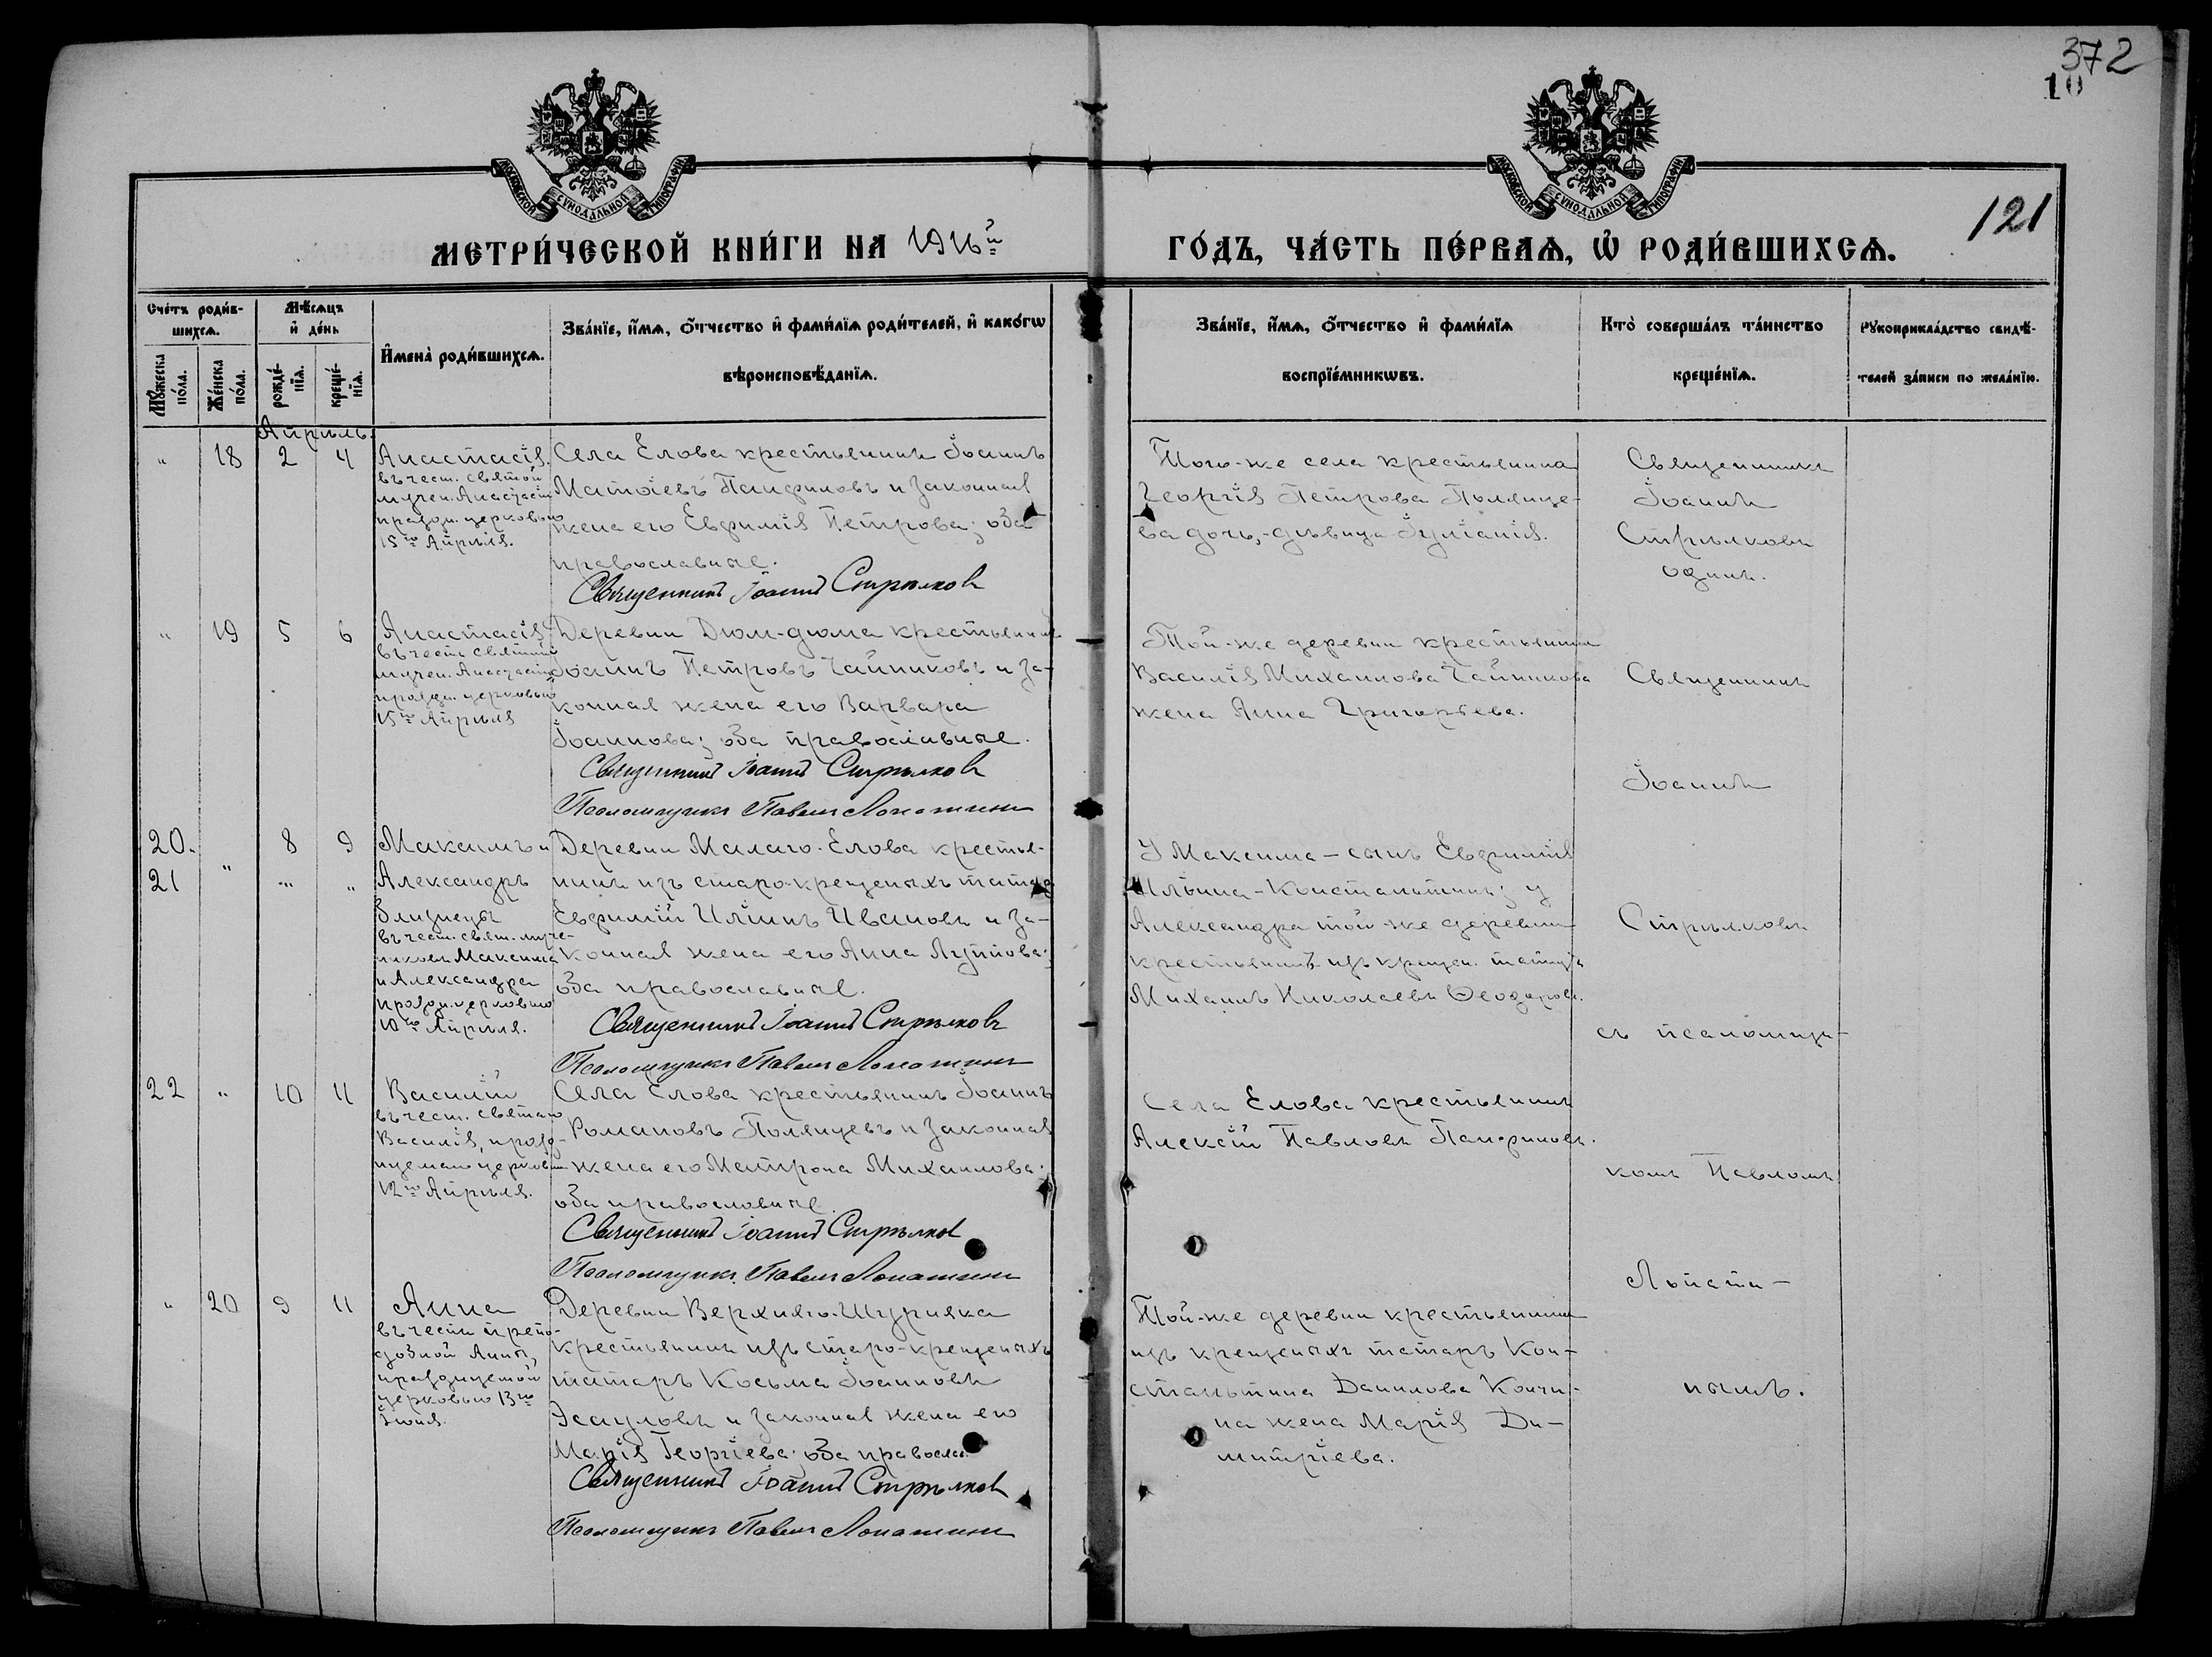 372
10
121
МОСКОВСКОЙ СѴНОДАЛЬНОЙ ТИПОГРАФІИ
МОСКОВСКОЙ СѴНОДАЛЬНОЙ ТИПОГРАФІИ
МЕТРИ́ЧЕСКОЙ КНИ́ГИ НА 1916й
ГО́ДЪ, ЧА́СТЬ ПЕ́РВАѦ, Ѿ РОДИ́ВШИХСѦ.
Сче́тъ роди́в-
шихсѧ.
Мꙋ́жеска по́ла.
Же́нска по́ла.
Мѣ́сѧцъ
и҆ де́нь
рожде́-
нїѧ.
креще́-
нїѧ.
И҆мена̀ роди́вшихсѧ.
Зва́нїе, и҆́мѧ, ѻ҆́тчество и҆ фами́лїѧ роди́телей, и҆ како́гѡ
вѣроисповѣ́данїѧ.
Зва́нїе, и҆́мѧ, ѻ҆́тчество и҆ фами́лїѧ
воспрїе́мникѡвъ.
Кто̀ соверша́лъ та́инство
креще́нїѧ.
Рꙋкоприкла́дство свидѣ́-
телей за́писи по жела́нїю.
Апрѣль.
" 18 2 4
Анастасія.
въ чест. святой
мучен. Анастасіи
праздн. церковью
15го Апрѣля.
Села Елова крестьянинъ Іоаннъ
Матѳіевъ Панфиловъ и законная
жена его Евфимія Петрова; оба
православные.
Священникъ Іоаннъ Стрѣлковъ
Того-же села крестьянина
Георгія Петрова Полянце-
ва дочь,-дѣвица Іуліанія.
Священникъ
Іоаннъ
Стрѣлковъ
одинъ.
" 19 5 6
Анастасія
въ честь святой
мучен. Анастасіи
праздн. церковью
15го Апрѣля
Деревни Дюм-дюма крестьянинъ
Іоаннъ Петровъ Чайниковъ и за-
конная жена его Варвара
Іоаннова; оба православные.
Священникъ Іоаннъ Стрѣлковъ
Псаломщикъ Павелъ Лопатинъ
Той-же деревни крестьянина
Василія Михаилова Чайникова
жена Анна Григорьева.
Священникъ
Іоаннъ
20. " 8 9
21 " "
Максимъ и
Александръ
близнецы
въ чест. свят. муче-
никовъ Максима
и Александра
праздн. церковью
10го Апрѣля.
Деревни Малаго-Елова крестья-
нинъ изъ старо-крещеныхъ татаръ
Евфимій Иліинъ Ивановъ и за-
конная жена его Анна Лупова;
оба православные.
Священникъ Іоаннъ Стрѣлковъ
Псаломщикъ Павелъ Лопатинъ
У Максима – сынъ Евфимія
Ильина – Константинъ; у
Александра той-же деревни
крестьянинъ изъ крещен. татаръ
Михаилъ Николаевъ Ѳеодоровъ.
Стрѣлковъ
съ псаломщи-
22 " 10 11
Василій
въ чест. святаго
Василія, празд-
нуемаго церковью
12го Апрѣля.
Села Елова крестьянинъ Іоаннъ
Романовъ Полянцевъ и законная
жена его Матрона Михаилова;
оба православные.
Священникъ Іоаннъ Стрѣлковъ
Псаломщикъ Павелъ Лопатинъ
Села Елова крестьянинъ
Алексій Павловъ Панфиловъ.
комъ Павломъ
Лопати-
" 20 9 11
Анна
въ чести препо-
добной Анны,
празднуемой
церковью 13го
Іюня.
Деревни Верхняго-Шурняка
крестьянинъ изъ старо-крещеныхъ
татаръ Косьма Іоанновъ
Эсауловъ и законная жена его
Марія Георгіева; оба правосл.
Священникъ Іоаннъ Стрѣлковъ
Псаломщикъ Павелъ Лопатинъ
Той-же деревни крестьянина
изъ крещеныхъ татаръ Кон-
стантина Данилова
жена Марія Ди-
митріева.
нымъ.